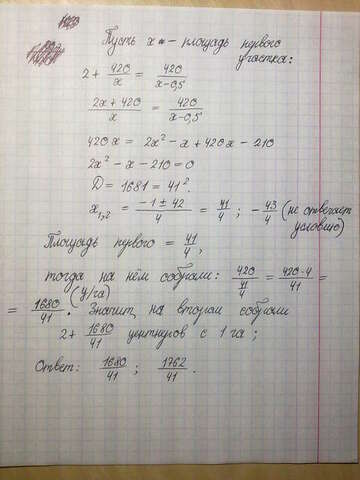 Пусть x – площадь первого
участка:
2 + 420/x = 420/(x-0,5)
(2x + 420)/x = 420/(x-0,5)
420x = 2x² - x + 420x - 210
2x² - x - 210 = 0
D = 1681 = 41².
x₁,₂ = (-1 ± 42)/4 = 41/4 ; -43/4 (не отвечает
условию)
Площадь первого = 41/4 ,
тогда на нём собрали: 420/(41/4) = (420·4)/41 =
= 1680/41 (ц/га). Значит, на втором собрали
2 + 1680/41 центнеров с 1 га ;
Ответ: 1680/41 ; 1762/41 .